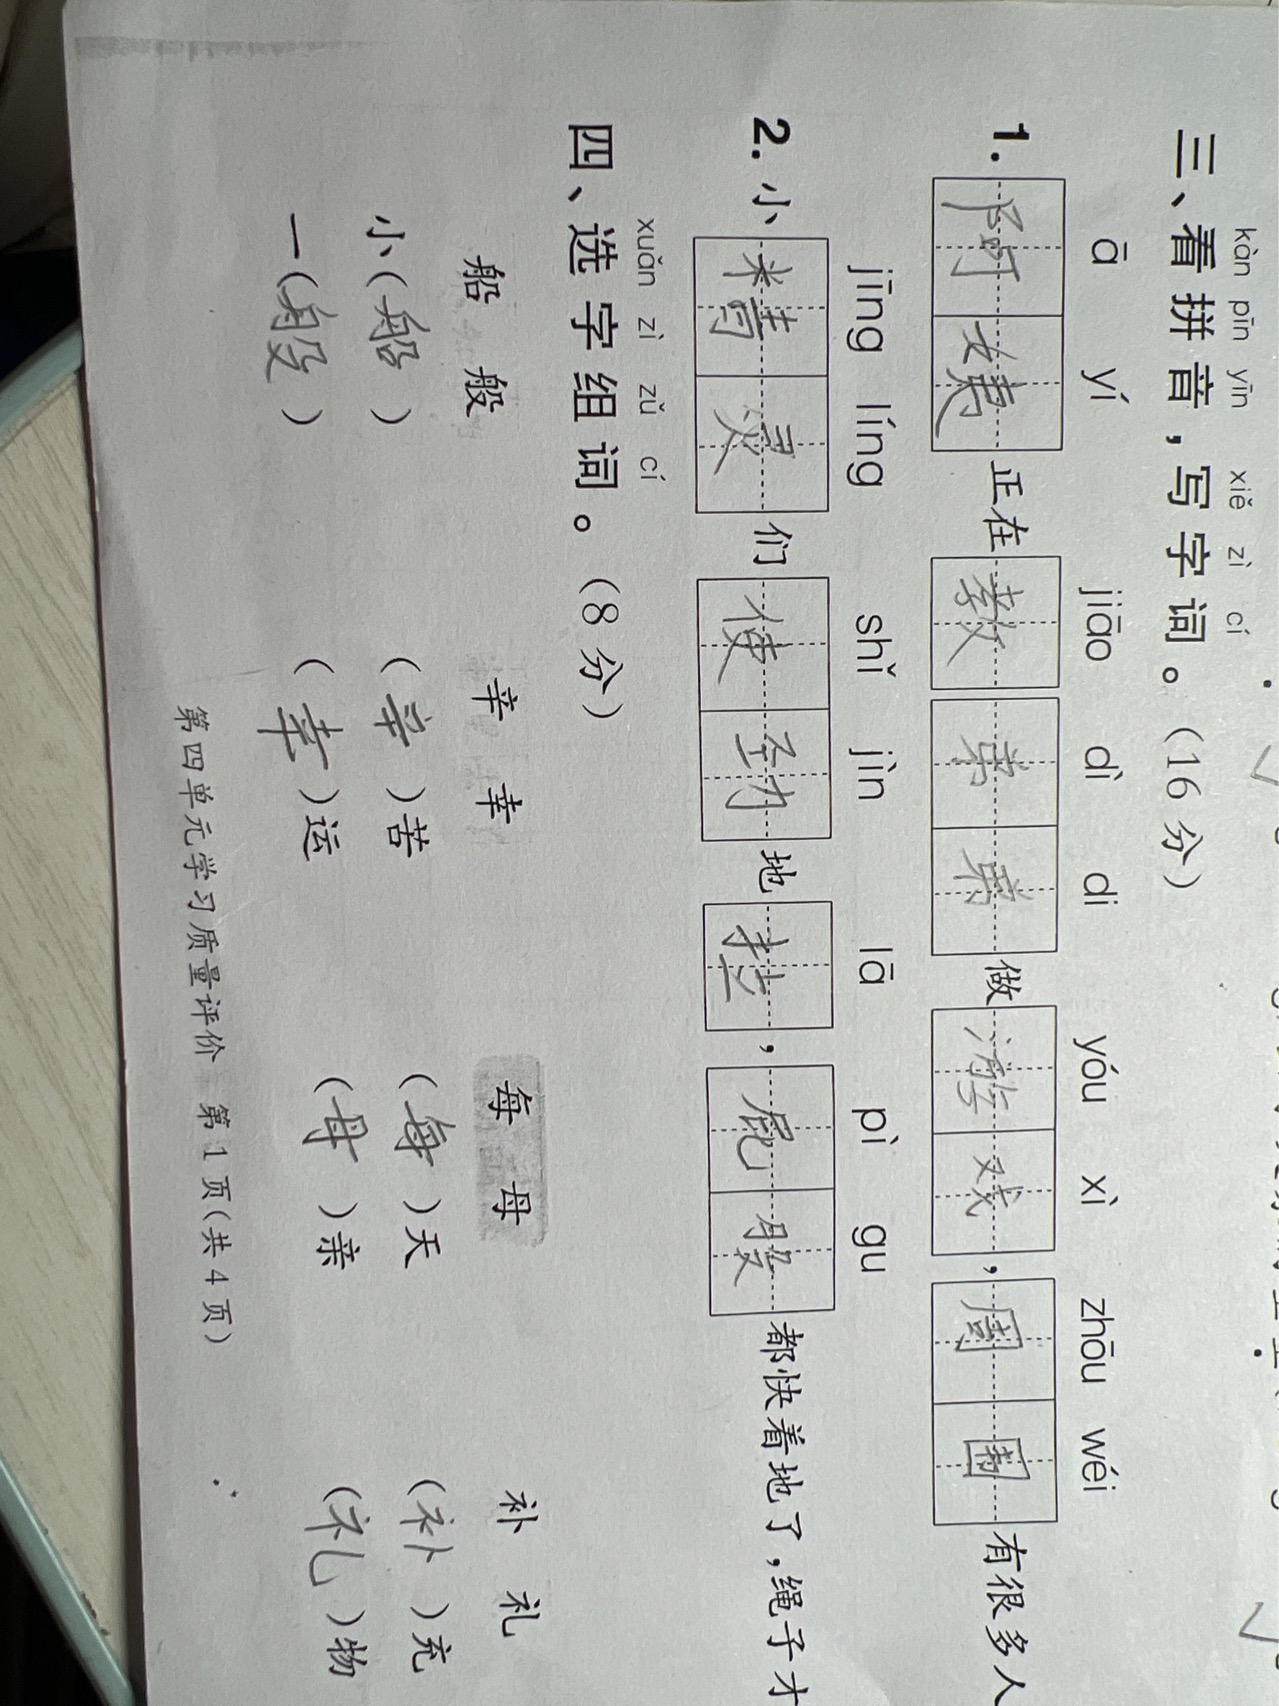 kàn pīn yīn xiě zì cí
三、看拼音，写字词。（16分）
ā yí jiāo dì di yóu xì zhōu wéi
1. 阿姨正在教弟弟做游戏，周围有很多人
jīng líng shǐ jìn lā pì gu
2. 小精灵们使劲地拉，屁股都快着地了，绳子才
xuǎn zì zǔ cí
四、选字组词。（8分）
船 般 辛 幸 每 母 补 礼
小（船） （辛）苦 （每）天 （补）充
一（般） （幸）运 （母）亲 （礼）物
第四单元学习质量评价 第1页（共4页）